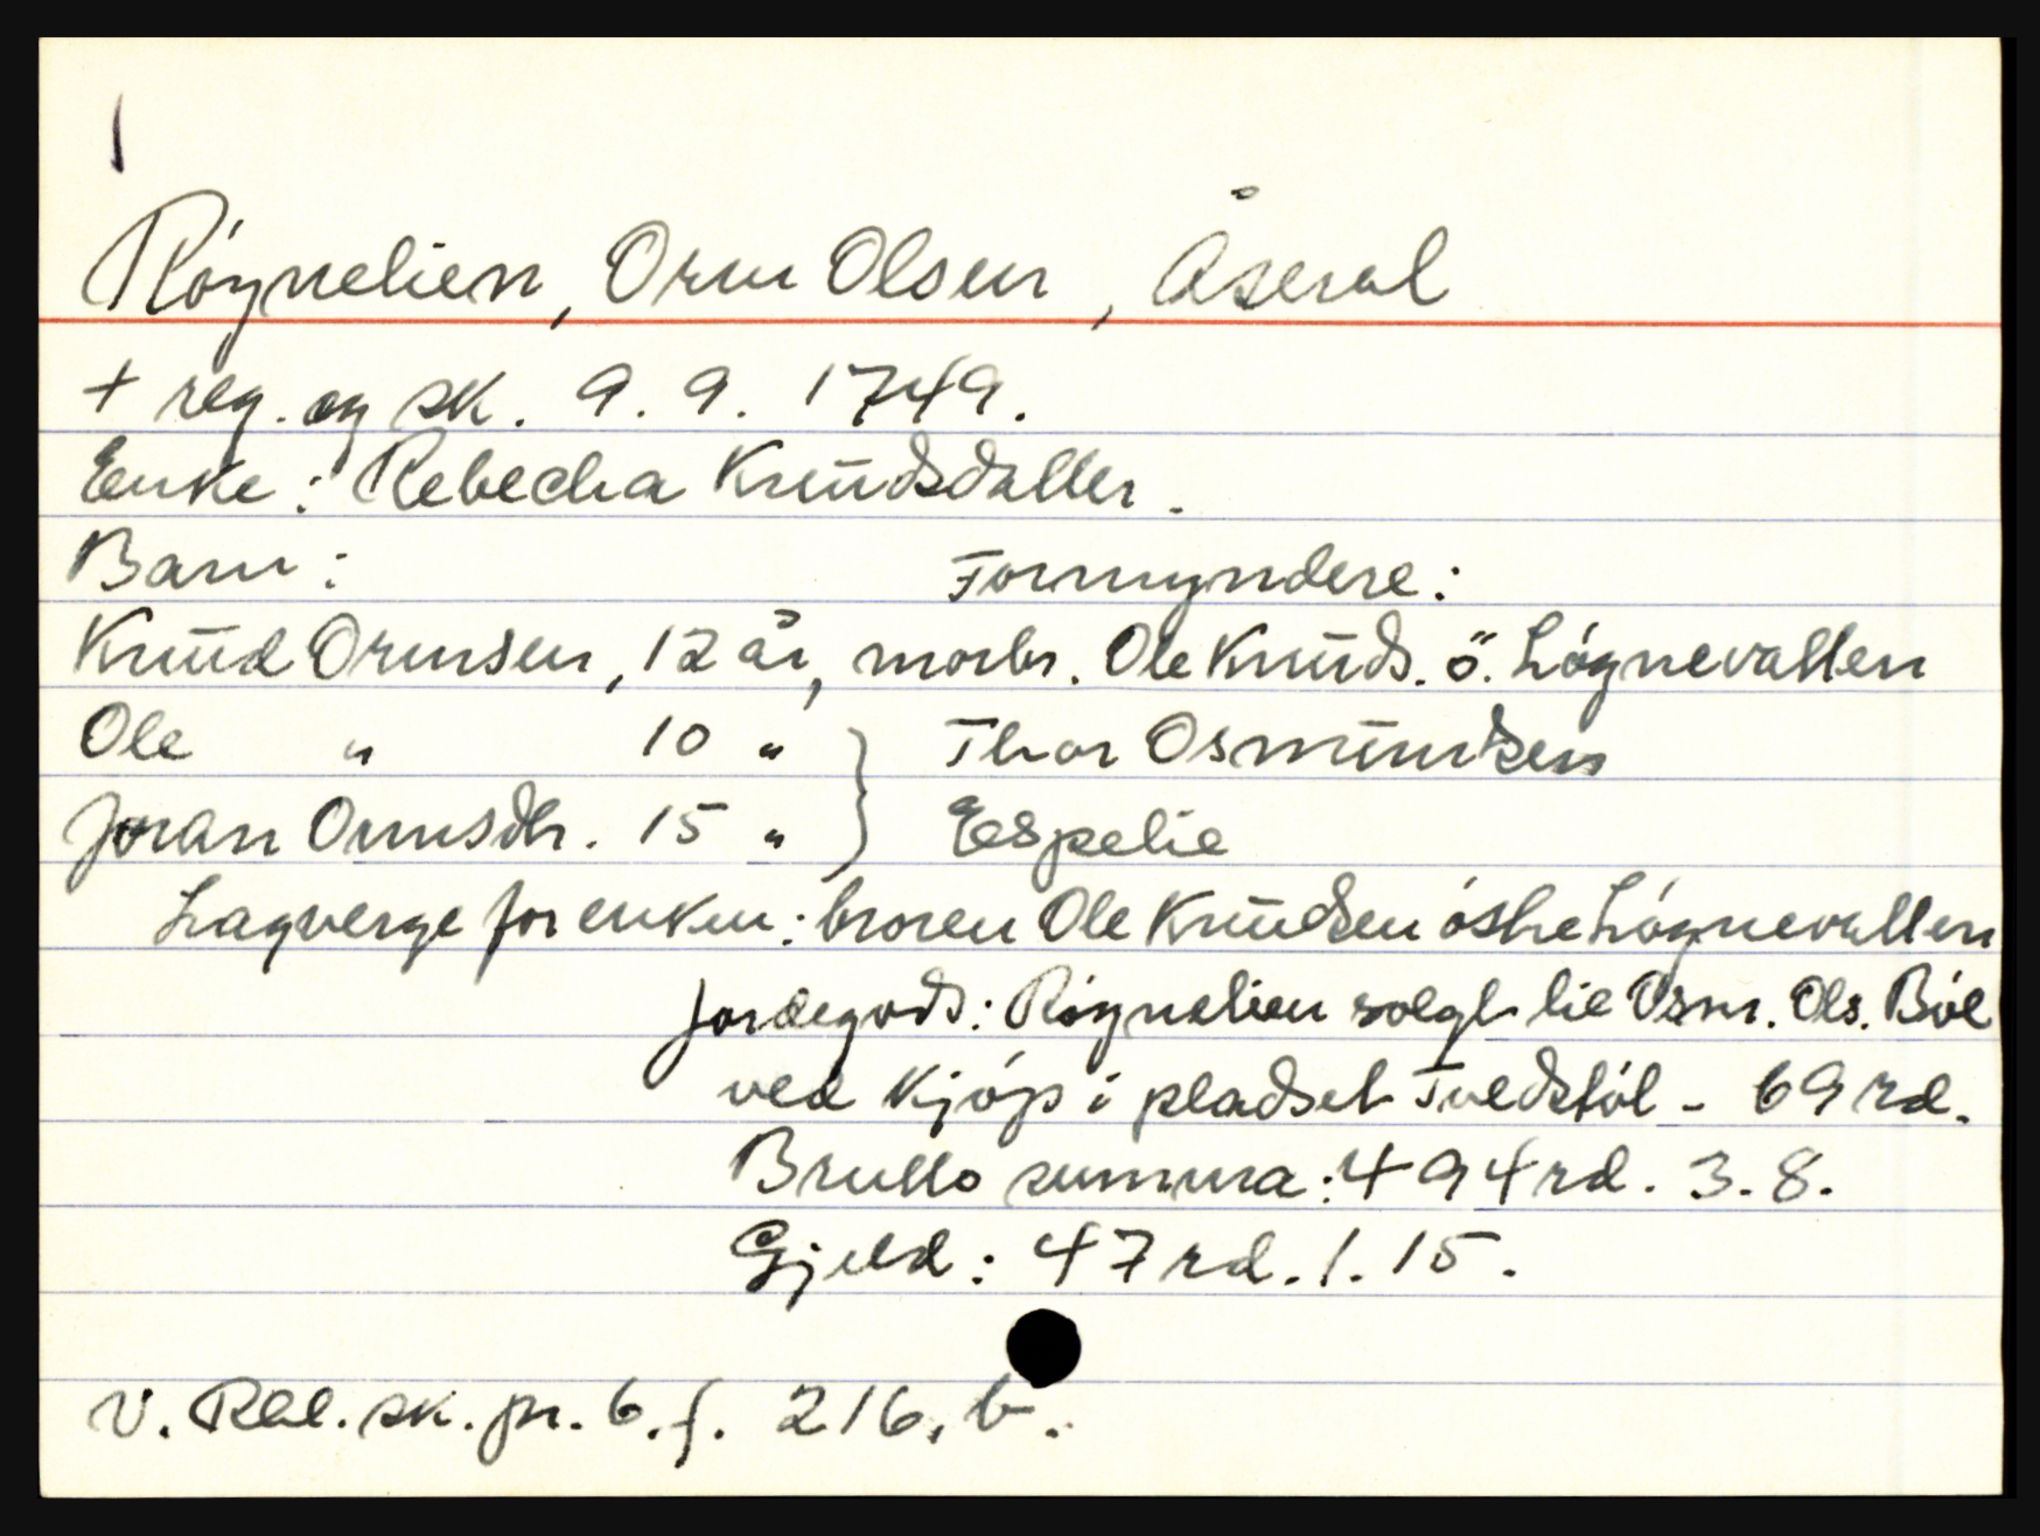 Røgnelien, Orm Olsen, Åseral
+ reg. og sk. 9. 9. 1749.
Enke: Rebecha Knudsdatter.
Barn: Formyndere:
Knud Ormsen, 12 år, morbr. Ole Knuds. ö. Løgnevatten
Ole " 10 " } Thor Osmundsen
Joran Ormsdtr. 15 " } Espelie
Lagverge for enken: broren Ole Knudsen østre Løgnevatten
Jordegods: Røgnelien solgt til Osm. Ols. Bøe
ved kjøp i pladset Tvedstøl - 69 rd.
Brutto summa: 494 rd. 3. 8.
Gjeld: 47 rd. 1. 15.
V. Rbl. sk. pr. 6. f. 216. b.